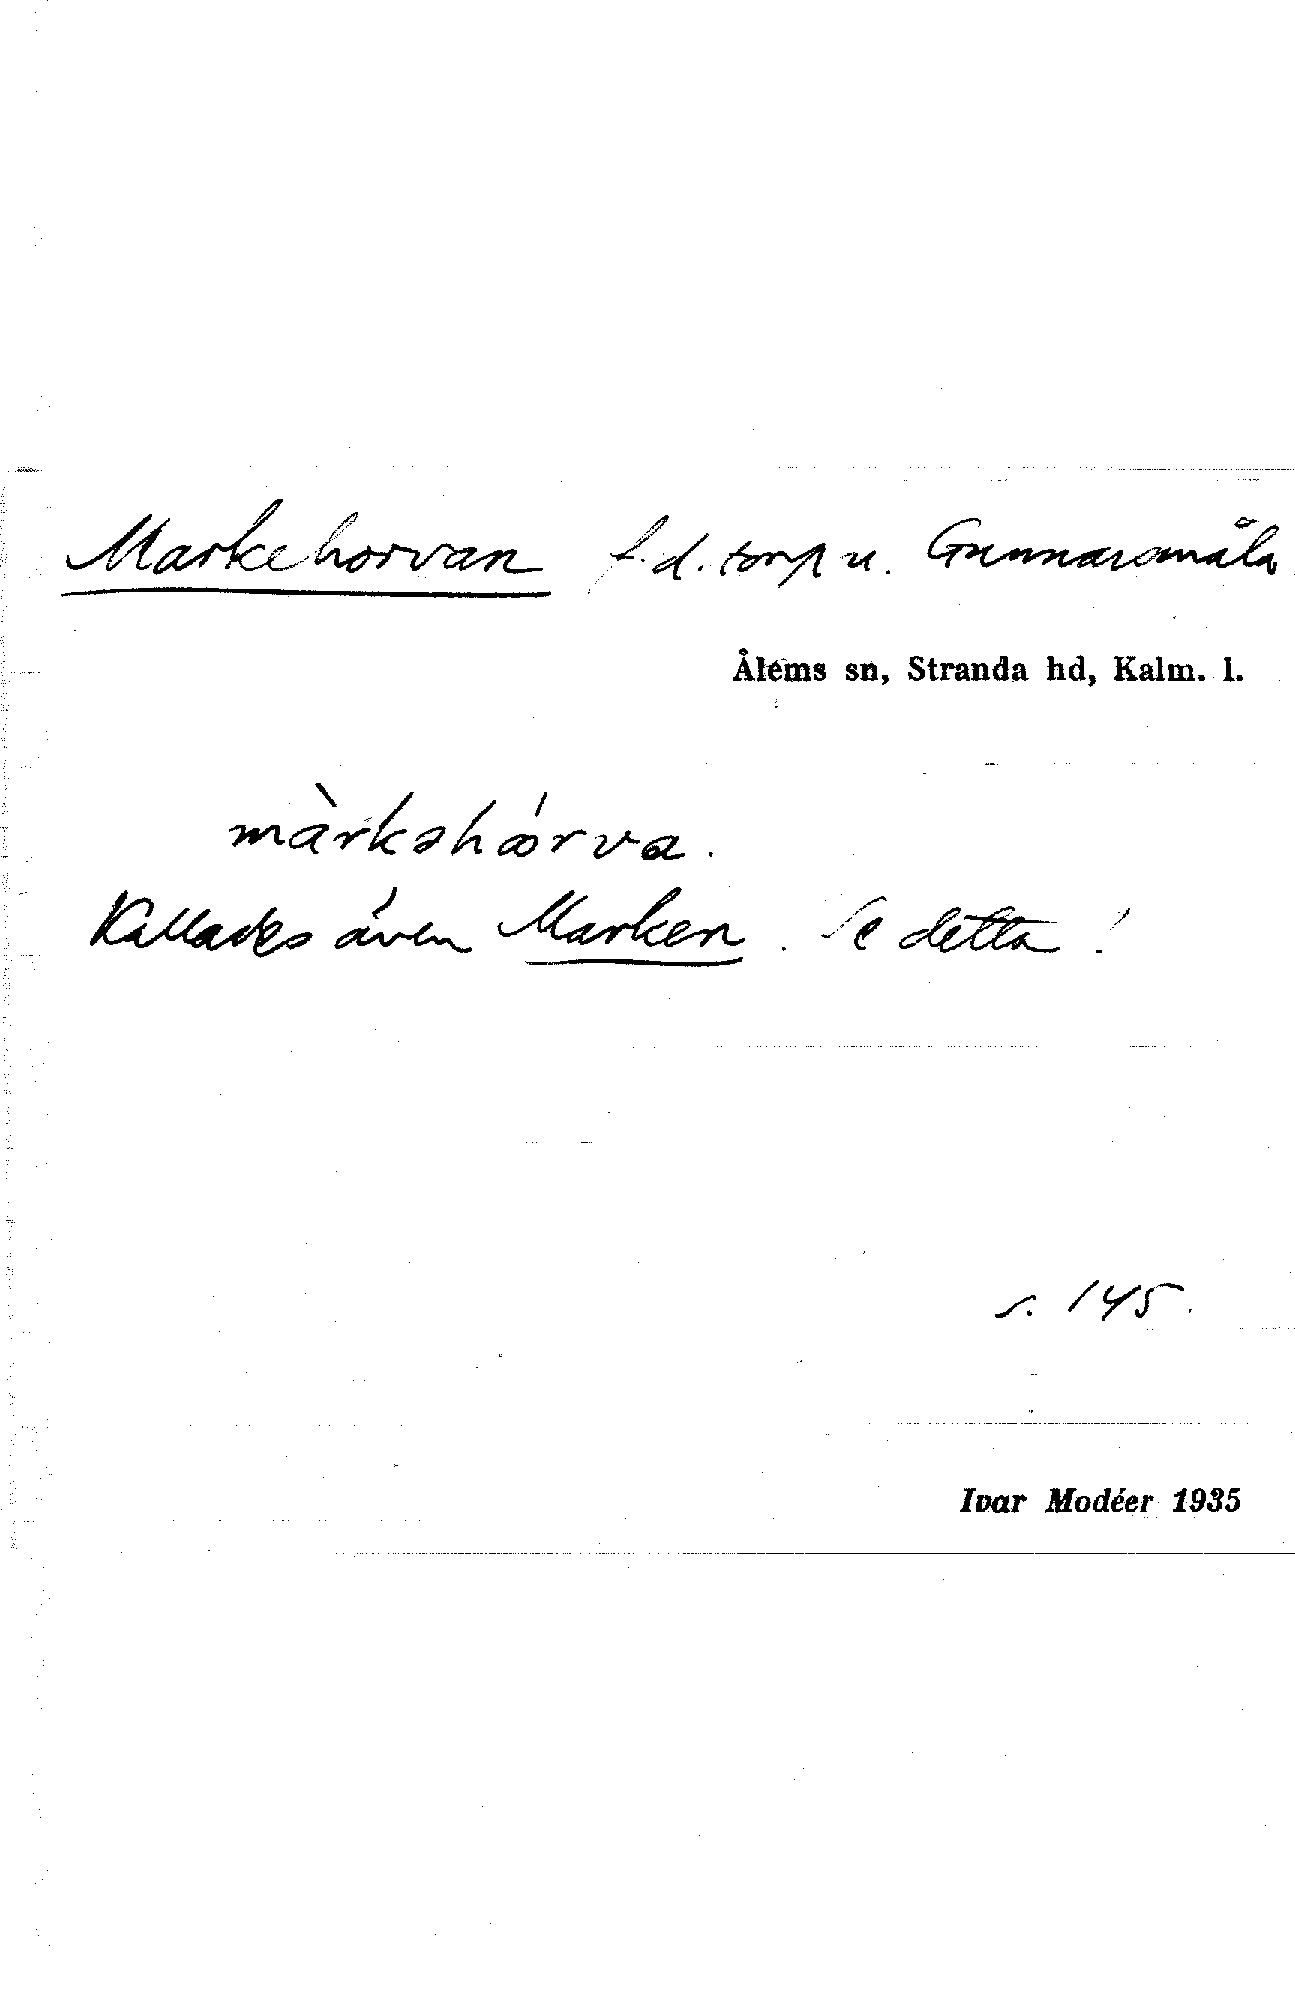 Markehorvan f.d. torp u. Gunnarsmåla
Ålems sn, Stranda hd, Kalm. l.
màrkəhórva.
Kallades även Marken. Se detta!
s. 145.
Ivar Modéer 1935